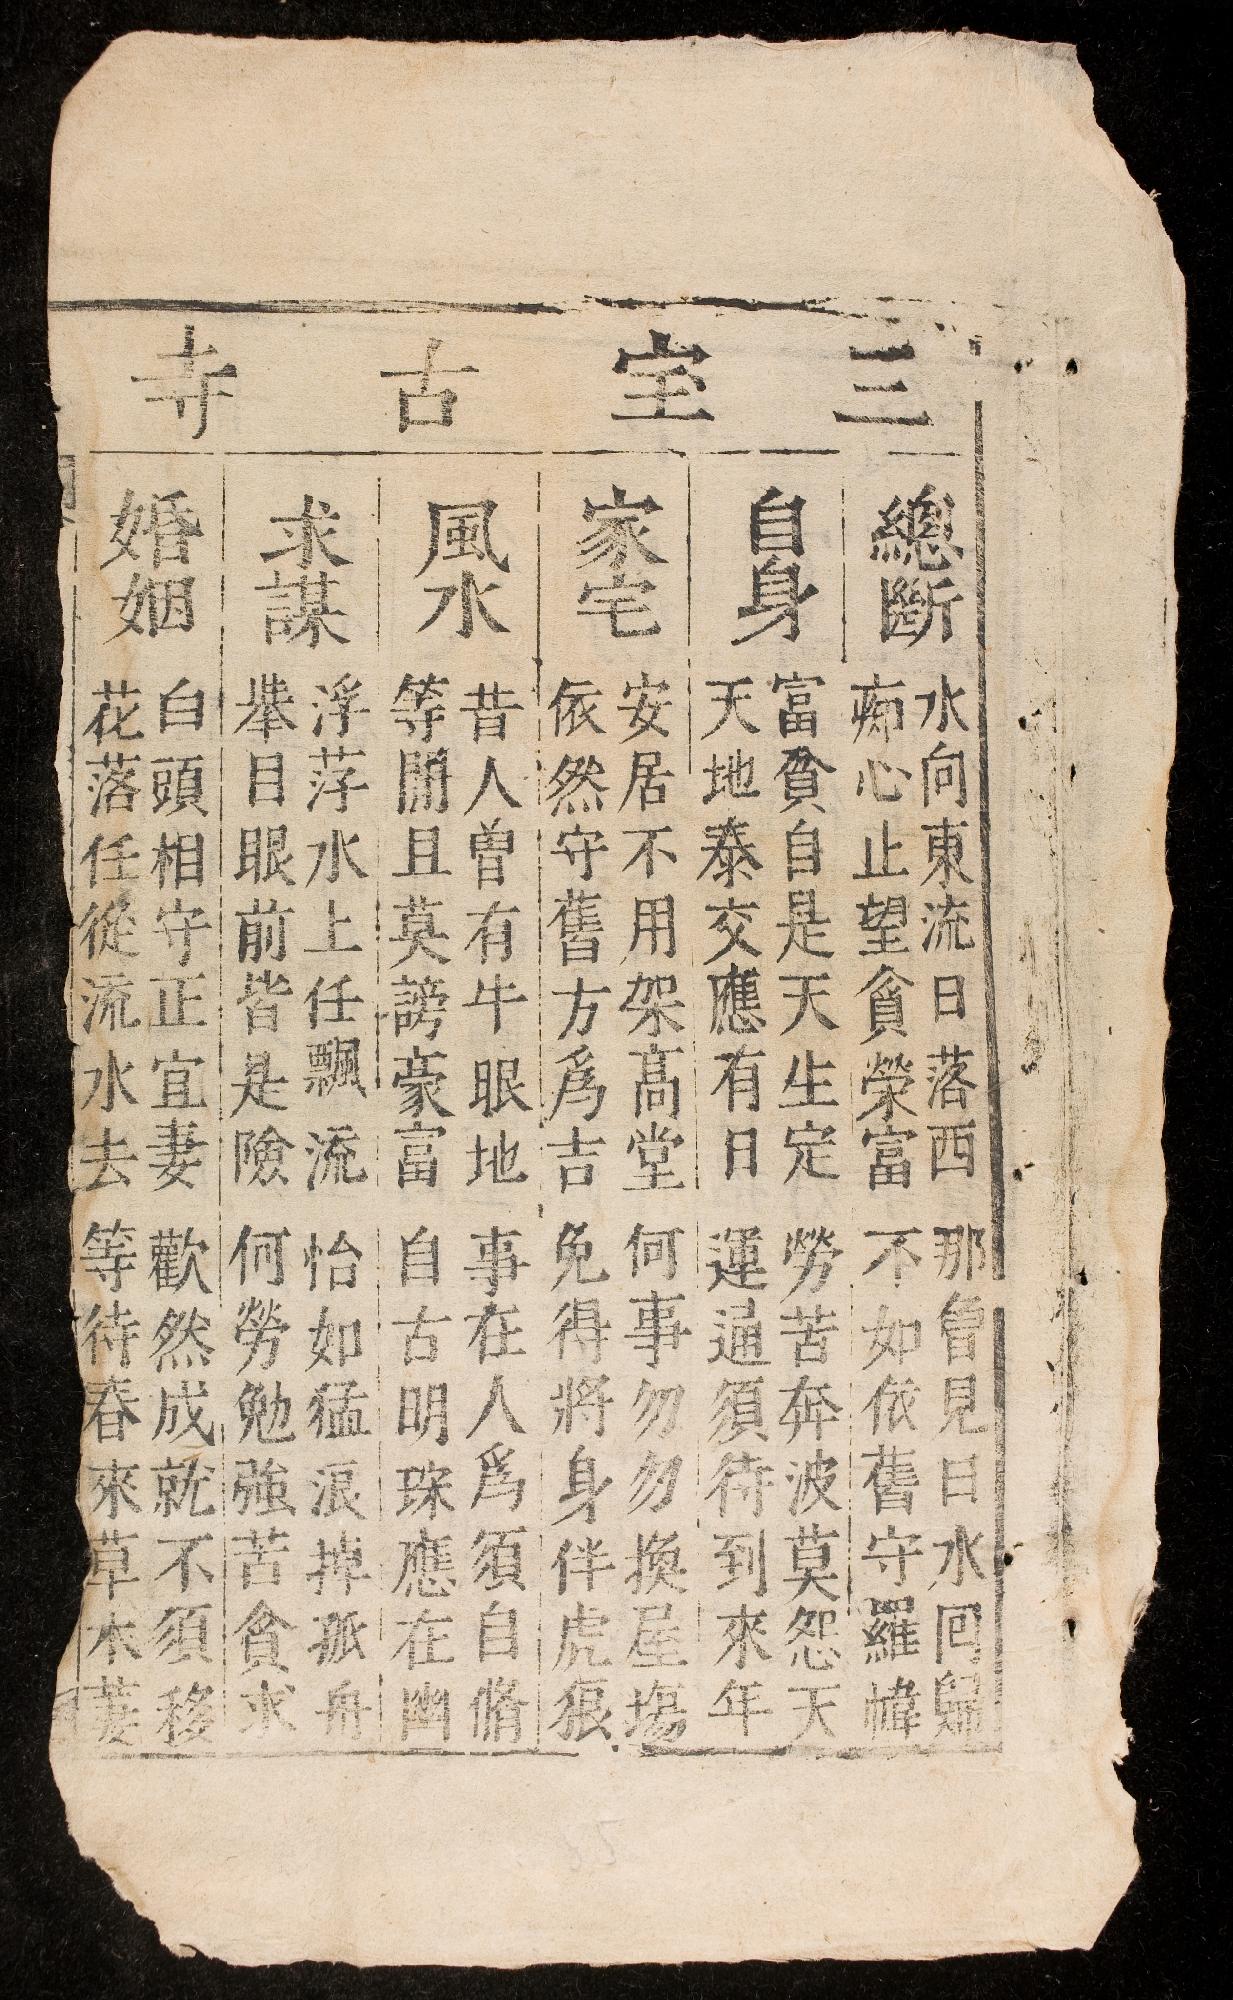 三宝古寺
總斷
水向東流日落西　那曾見日水回歸
痴心止望貪榮富　不如依舊守羅幃
自身
富貧自是天生定　勞苦奔波莫怨天
天地泰交應有日　運逼須待到來年
家宅
安居不用架高堂　何事勿勿換屋塲
依然守舊方爲吉　免得將身伴虎狼
風水
昔人曽有牛眠地　事在人爲須自脩
等閒且莫謗豪富　自古明珠應在幽
求謀
浮萍水上任飄流　恰如猛浪掉孤舟
舉目眼前皆是險　何勞勉強苦貪求
婚姻
白頭相守正宜妻　歡然成就不須移
花落任從流水去　等待春來草木萋